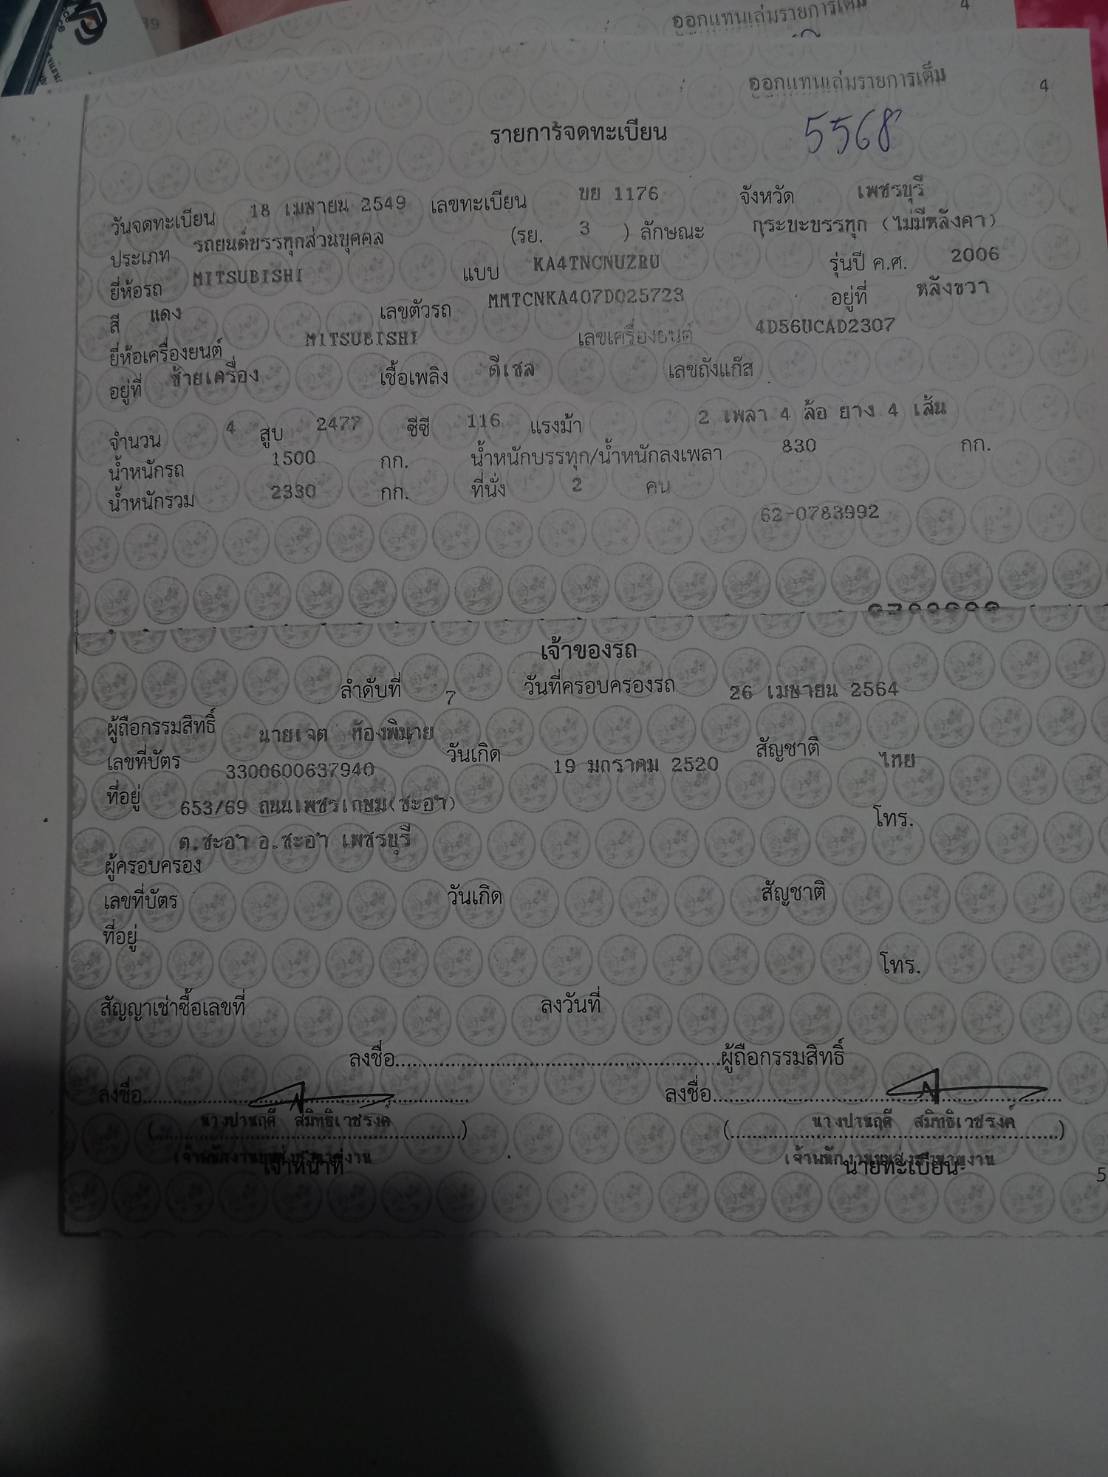 ออกแทนเล่มรายการเต็ม 4
ออกแทนเล่มรายการเต็ม 4
รายการจดทะเบียน 5568
วันจดทะเบียน 18 เมษายน 2549 เลขทะเบียน บย 1176 จังหวัด เพชรบุรี
ประเภท รถยนต์บรรทุกส่วนบุคคล (รย. 3 ) ลักษณะ กระบะบรรทุก (ไม่มีหลังคา)
ยี่ห้อรถ MITSUBISHI แบบ KA4TNCNUZRU รุ่นปี ค.ศ. 2006
สี แดง เลขตัวรถ MMTCNKA407D025723 อยู่ที่ หลังขวา
ยี่ห้อเครื่องยนต์ MITSUBISHI เลขเครื่องยนต์ 4D56UCAD2307
อยู่ที่ ซ้ายเครื่อง เชื้อเพลิง ดีเซล เลขถังแก๊ส
จำนวน 4 สูบ 2477 ซีซี 116 แรงม้า 2 เพลา 4 ล้อ ยาง 4 เส้น
น้ำหนักรถ 1500 กก. น้ำหนักบรรทุก/น้ำหนักลงเพลา 830 กก.
น้ำหนักรวม 2330 กก. ที่นั่ง 2 คน
62-0783992
เจ้าของรถ
ลำดับที่ 7 วันที่ครอบครองรถ 26 เมษายน 2564
ผู้ถือกรรมสิทธิ์ นายเจต ห้องพิมาย
เลขที่บัตร 3300600637940 วันเกิด 19 มกราคม 2520 สัญชาติ ไทย
ที่อยู่ 653/69 ถนนเพชรเกษม(ชะอำ)
โทร.
ต.ชะอำ อ.ชะอำ เพชรบุรี
ผู้ครอบครอง
เลขที่บัตร วันเกิด สัญชาติ
ที่อยู่
โทร.
สัญญาเช่าซื้อเลขที่ ลงวันที่
ลงชื่อ ผู้ถือกรรมสิทธิ์
ลงชื่อ ลงชื่อ
(นางปานฤดี สมิทธิเวชรงค์) (นางปานฤดี สมิทธิเวชรงค์)
เจ้าหน้าที่ นายทะเบียน
5